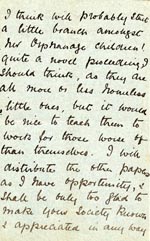 I think will probably start
a little branch amongst
her Orphanage children!
quite a novel proceeding I
should think, as they are
all more or less homeless
little ones, but it would
be nice to teach them to
work for those worse off
than themselves. I will
distribute the other papers
as I have opportunity, &
shall be only too glad to
make your Society known
& appreciated in any way